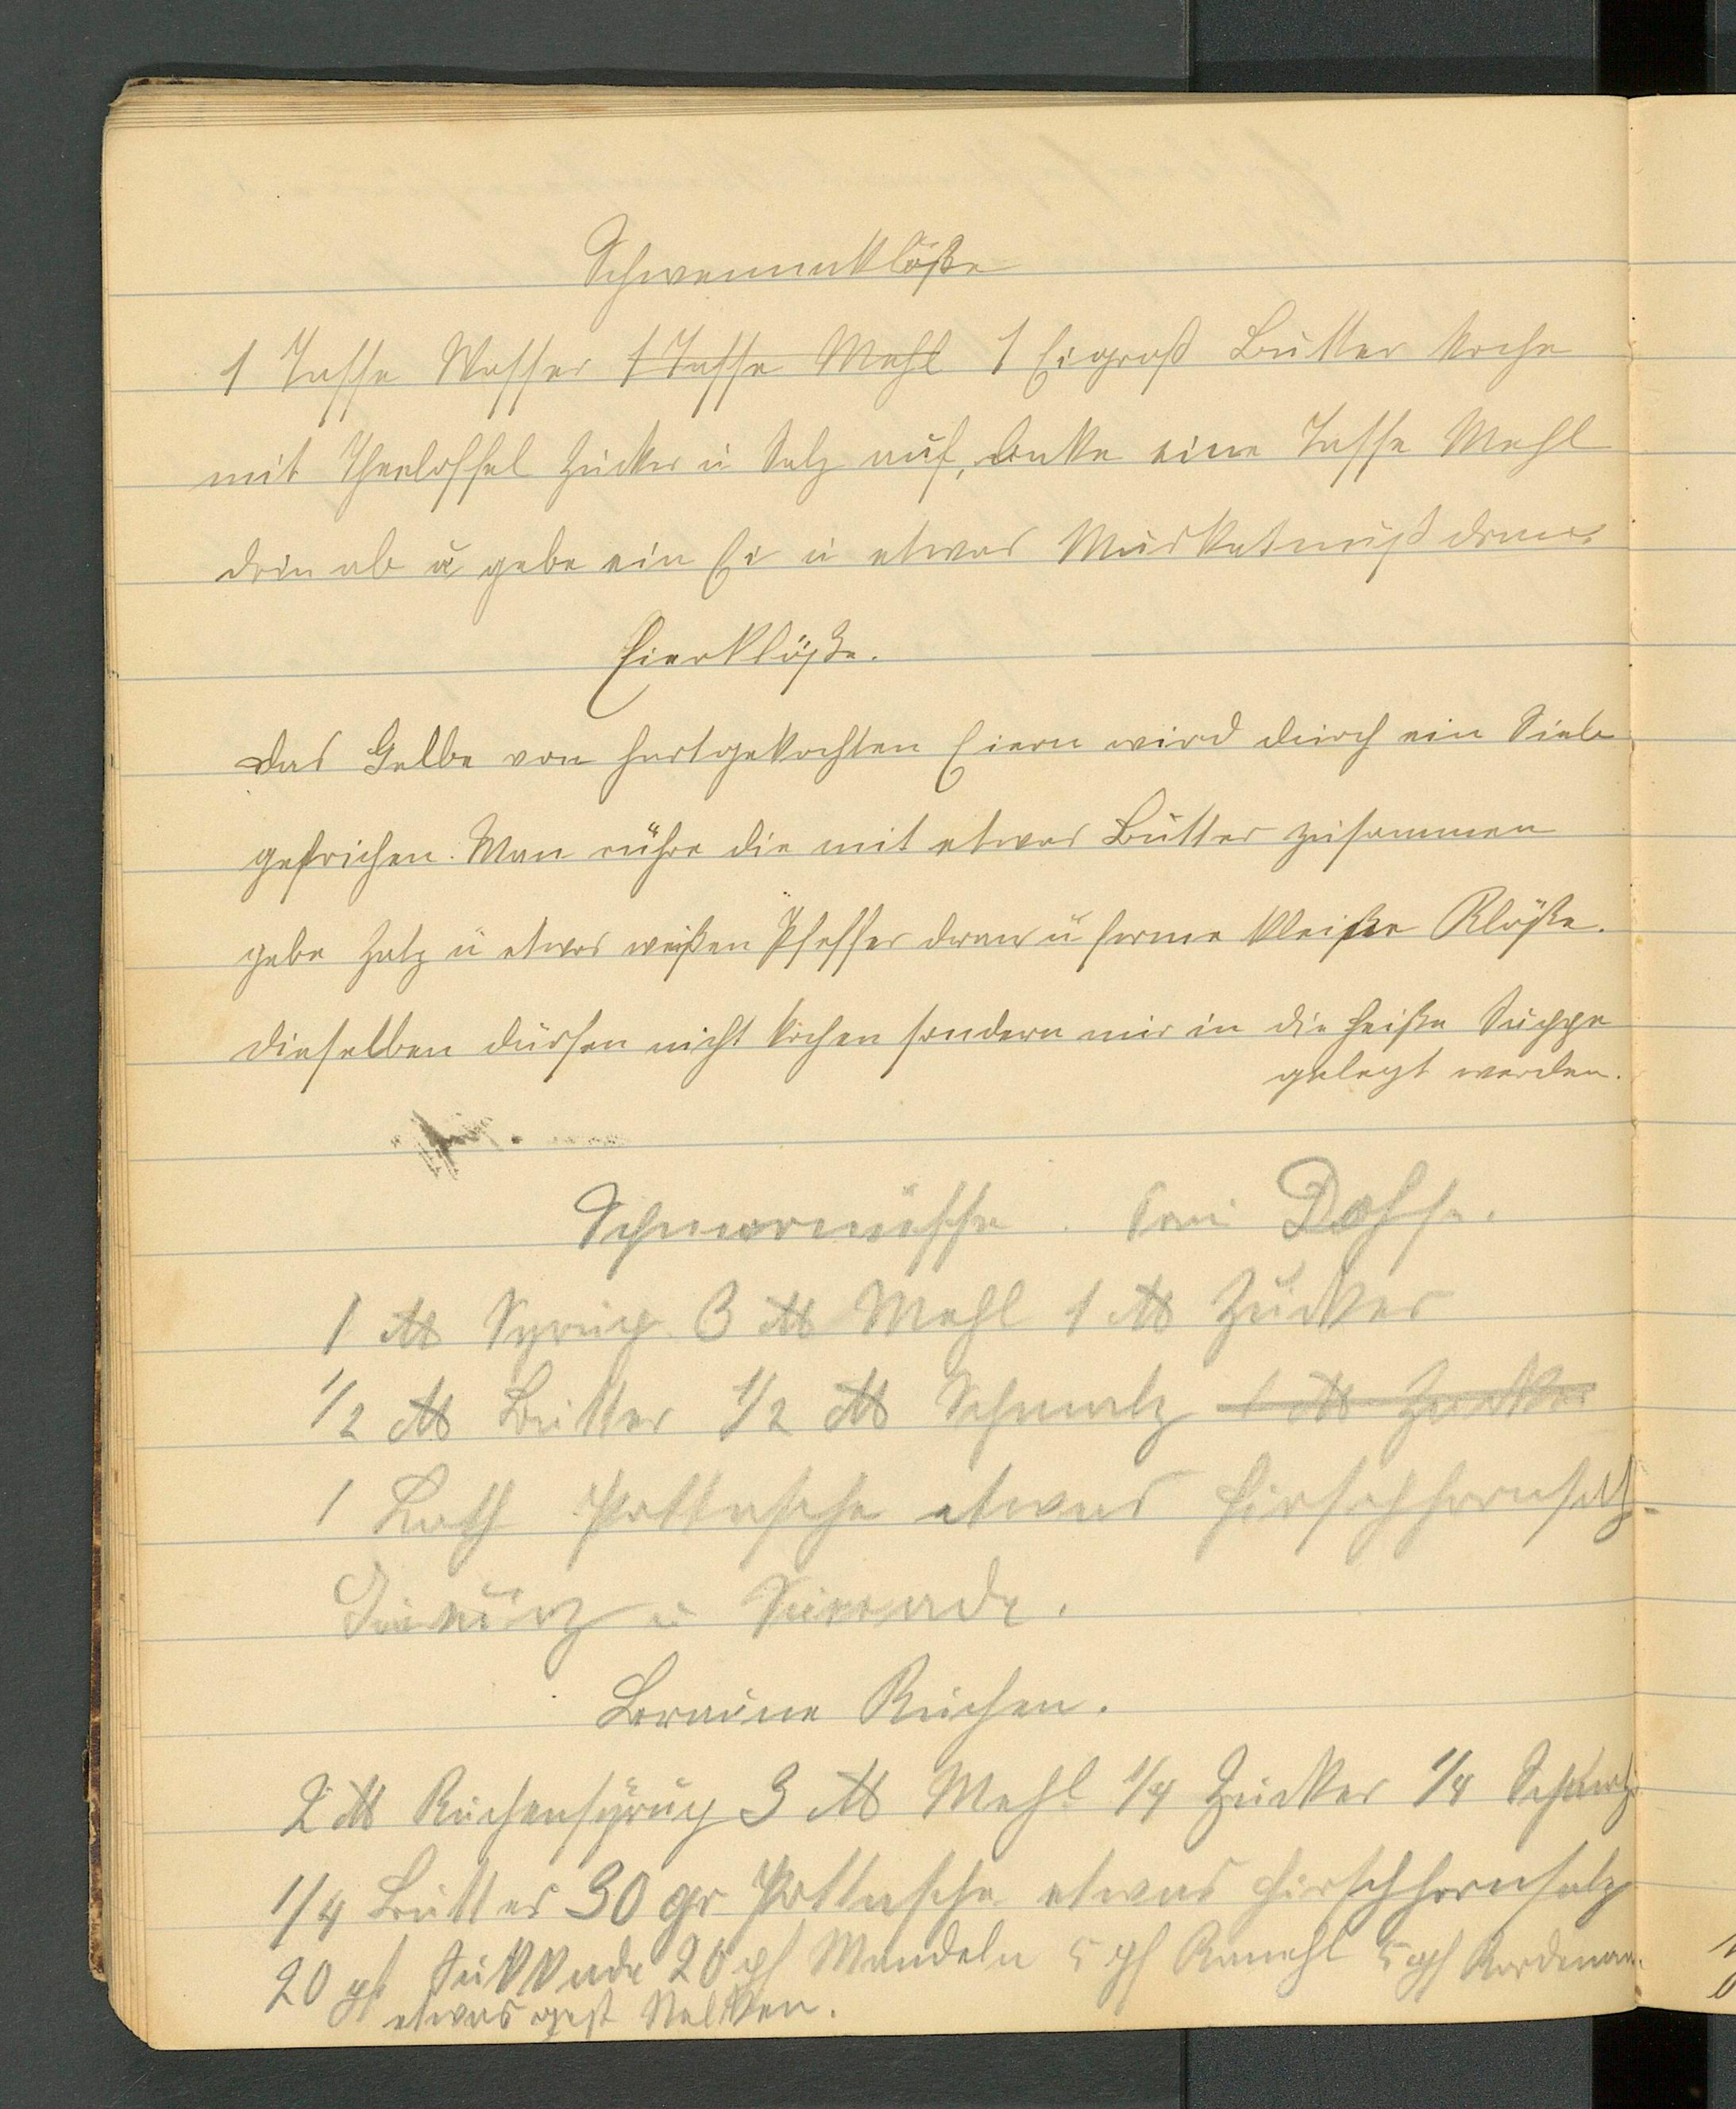 Schwemmklöße
1 Tasse Wasser 1 Tasse Mehl 1 Eigroß Butter koche
mit Theelöffel Zucker u Salz auf, backe eine Tasse Mehl
drin ab u gebe ein Ei u etwas Muskatnuß dran.
Eierklöße.
Das Gelbe von hartgekochten Eiern wird durch ein Sieb
gestrichen. Man rühre die mit etwas Butter zusammen
gebe Salz u etwas weißen Pfeffer dran u forme kleine Klöße.
dieselben dürfen nicht kochen sondern nur in die heiße Suppe
gelegt werden.
Pfeffernüsse. Frau
1 ℔ Syrup 3 ℔ Mehl 1 ℔ Zucker
1/2 ℔ Butter 1/2 ℔ Schmalz 1 ℔ Zucker
1 Loth Pottasche etwas Hirschhornsalz
Gewürz u Sukkade.
Braune Kuchen.
2 ℔ Kuchensyrup 3 ℔ Mehl 1/4 Zucker 1/4 Schmalz
1/4 Butter 30 gr Pottasche etwas Hirschhornsalz
20 pf Sukkade 20 pf Mandeln 5 pf Kanehl 5 pf Kardemom.
etwas gest Nelken.